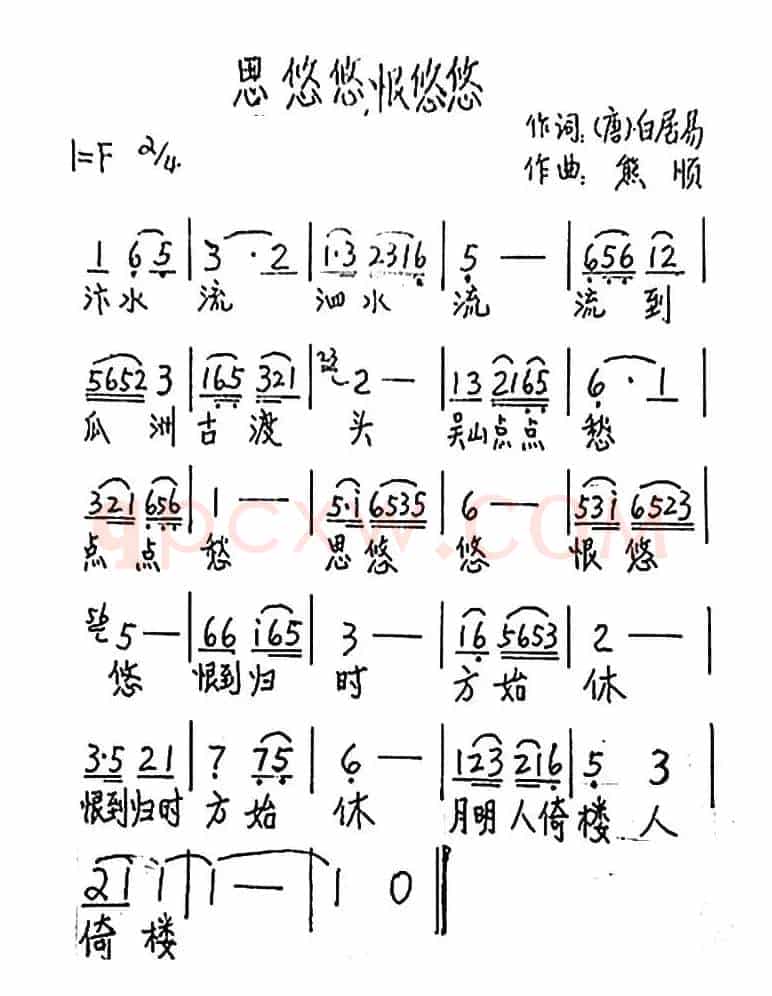 思悠悠,恨悠悠
作词:(唐)·白居易
1=F 2/4
作曲: 熊 顺
1 65 | 3 · 2 | 1·3 2316 | 5 — | 656 12 |
汴水 流 泗水 流 流 到
5652 3 | 165 321 | 23 2 — | 13 2165 | 6 · 1 |
瓜 洲 古 渡 头 吴山点点 愁
321 656 | 1 — | 5·i 6535 | 6 — | 53i 6523 |
点 点 愁 思悠 悠 恨 悠
56 5 — | 66 i65 | 3 — | 16 5653 | 2 — |
悠 恨到归 时 方始 休
3·5 21 | 7 75 | 6 — | 123 216 | 5 3 |
恨到归时 方始 休 月明人倚楼 人
2i i | i — | i 0 ‖
倚楼
qpcxw.com